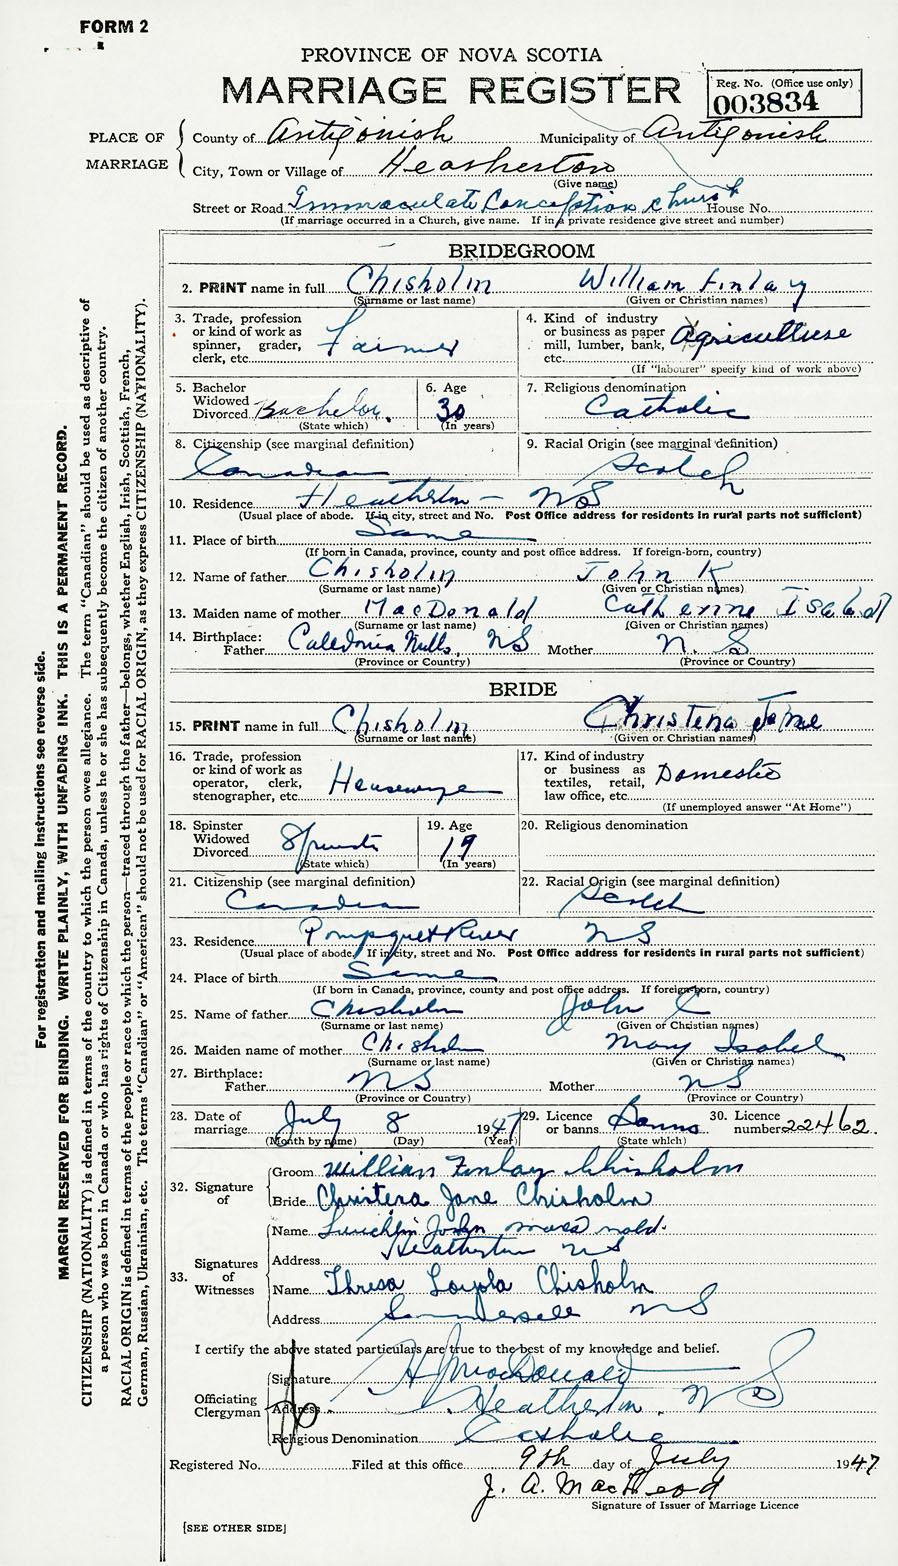 FORM 2
PROVINCE OF NOVA SCOTIA
MARRIAGE REGISTER
Reg. No. (Office use only)
003834
PLACE OF MARRIAGE
County of Antigonish Municipality of Antigonish
City, Town or Village of Heatherton
(Give name)
Street or Road Immaculate Conception Church House No.
(If marriage occurred in a Church, give name. If in a private residence give street and number)
BRIDEGROOM
2. PRINT name in full Chisholm William Finlay
(Surname or last name) (Given or Christian names)
3. Trade, profession or kind of work as spinner, grader, clerk, etc. Farmer
4. Kind of industry or business as paper mill, lumber, bank, etc. Agriculture
(If "labourer" specify kind of work above)
5. Bachelor Widowed Divorced Bachelor.
(State which)
6. Age 30
(In years)
7. Religious denomination Catholic
8. Citizenship (see marginal definition) Canadian
9. Racial Origin (see marginal definition) Scotch
10. Residence Heatherton - NS
(Usual place of abode. If in city, street and No. Post Office address for residents in rural parts not sufficient)
11. Place of birth Same
(If born in Canada, province, county and post office address. If foreign-born, country)
12. Name of father Chisholm John K
(Surname or last name) (Given or Christian names)
13. Maiden name of mother MacDonald Catherine Isabell
(Surname or last name) (Given or Christian names)
14. Birthplace: Father Caledonia Mills, NS Mother N. S
(Province or Country) (Province or Country)
BRIDE
15. PRINT name in full Chisholm Christena Jane
(Surname or last name) (Given or Christian names)
16. Trade, profession or kind of work as operator, clerk, stenographer, etc. Housewife
17. Kind of industry or business as textiles, retail, law office, etc. Domestic
(If unemployed answer "At Home")
18. Spinster Widowed Divorced Spinster
(State which)
19. Age 19
(In years)
20. Religious denomination
21. Citizenship (see marginal definition) Canadian
22. Racial Origin (see marginal definition) Scotch
23. Residence Pomquet River NS
(Usual place of abode. If in city, street and No. Post Office address for residents in rural parts not sufficient)
24. Place of birth Same
(If born in Canada, province, county and post office address. If foreign-born, country)
25. Name of father Chisholm John C
(Surname or last name) (Given or Christian names)
26. Maiden name of mother Chisholm Mary Isobel
(Surname or last name) (Given or Christian names)
27. Birthplace: Father NS Mother NS
(Province or Country) (Province or Country)
28. Date of marriage July 8 1947
(Month by name) (Day) (Year)
29. Licence or banns Banns
(State which)
30. Licence number 22462.
32. Signature of
Groom William Finlay Chisholm
Bride Christena Jane Chisholm
33. Signatures of Witnesses
Name John
Address Heatherton NS
Name Thresa Loyola Chisholm
Address NS
I certify the above stated particulars are true to the best of my knowledge and belief.
Officiating Clergyman
Signature H J MacDonald
Address Heatherton, NS
Religious Denomination Catholic
Registered No. Filed at this office 9th day of July 1947
J. A. MacLeod
Signature of Issuer of Marriage Licence
[SEE OTHER SIDE]
For registration and mailing instructions see reverse side.
MARGIN RESERVED FOR BINDING. WRITE PLAINLY, WITH UNFADING INK. THIS IS A PERMANENT RECORD.
CITIZENSHIP (NATIONALITY) is defined in terms of the country to which the person owes allegiance. The term "Canadian" should be used as descriptive of
a person who was born in Canada or who has rights of Citizenship in Canada, unless he or she has subsequently become the citizen of another country.
RACIAL ORIGIN is defined in terms of the people or race to which the person—traced through the father—belongs, whether English, Irish, Scottish, French,
German, Russian, Ukrainian, etc. The terms "Canadian" or "American" should not be used for RACIAL ORIGIN, as they express CITIZENSHIP (NATIONALITY).